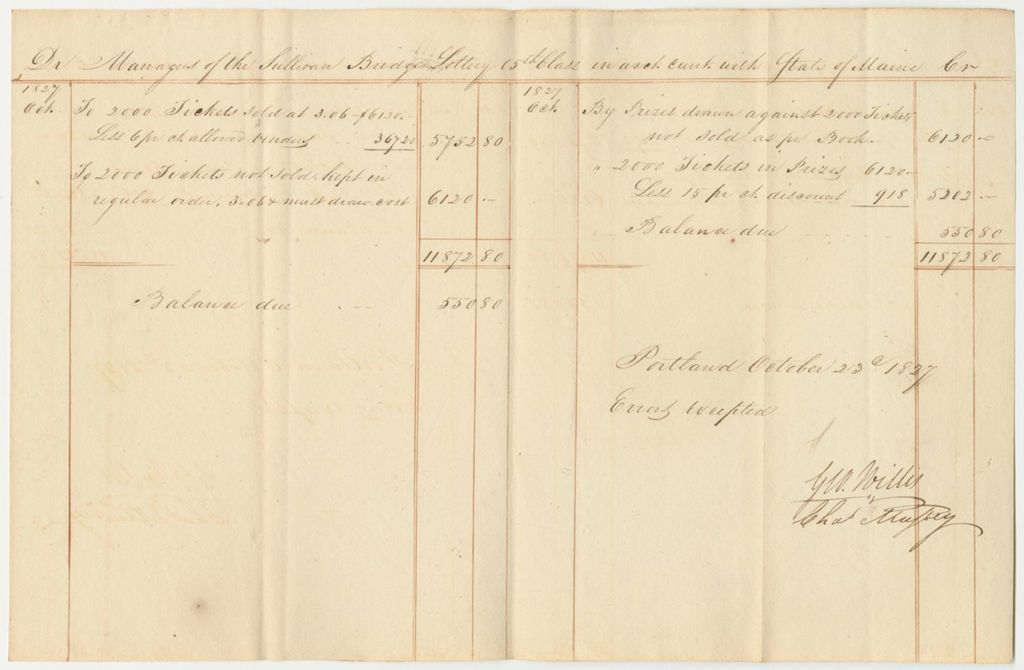 Dr Managers of the Sullivan Bridge Lottery 15th Class in acct. currt. with State of Maine Cr
1827
Oct. To 2000 Tickets sold at 3.06 $6120.-
Less 6 pr ct. allowed venders 367.20 5752 80
To 2000 Tickets not sold. kept in
regular order, 3.06 & must draw cost 6120 -
11872 80
Balance due 550 80
1827
Oct. By Prizes drawn against 2000 Tickets
not sold as pr Book. 6120 -
" 2000 Tickets in Prizes 6120 -
Less 15 pr ct. discount 918 5202 -
Balance due 550 80
11872 80
Portland October 23d 1827
Errors excepted
Geo. Willis
Chas Mussey